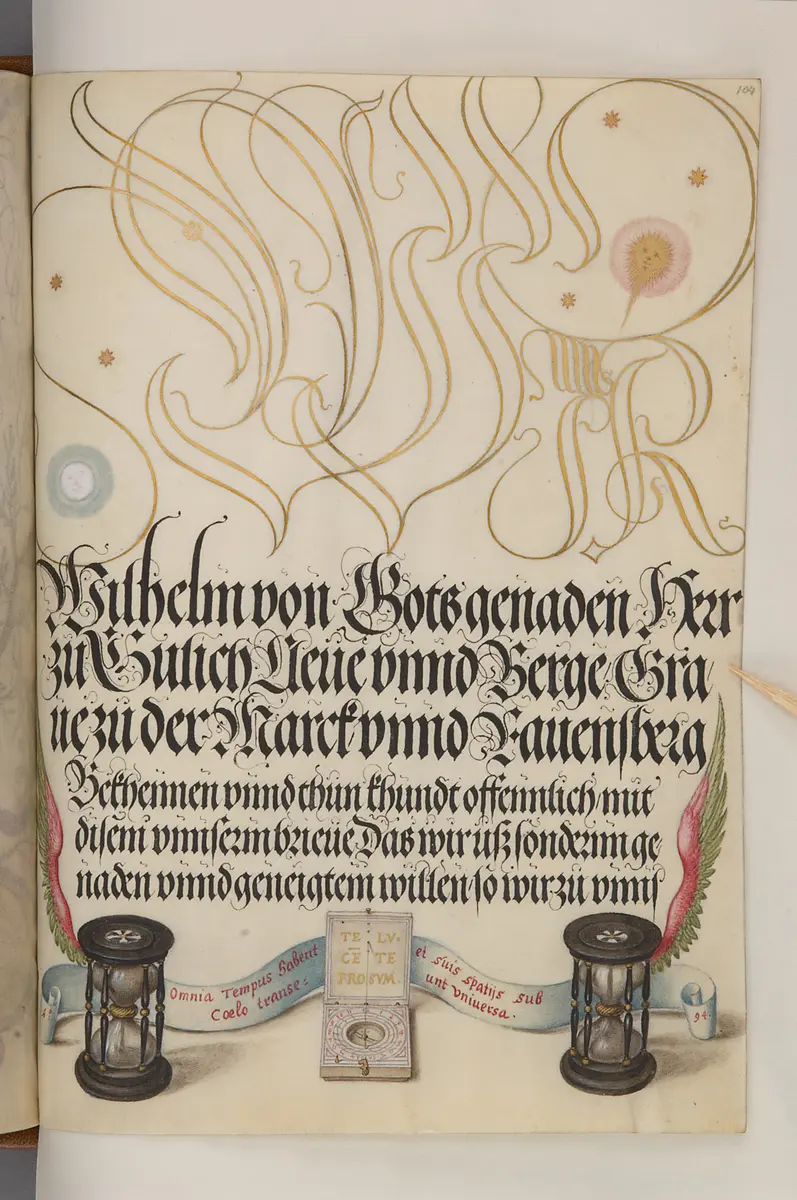 104
Wilhelm von Gots genaden Herr
zu Gulich Cleue vnnd Berge Gra
ue zu der Marck vnnd Rauensberg
Bekhennen vnnd thun khundt offennlich mit
disem vnnserm brieue Das wir uß sonderm ge
naden vnnd geneigtem willen so wir zu vnns
Omnia Tempus habent
Coelo transe:
TE LV:
CE TE
PROSVM.
et suis spatijs sub
unt vniuersa.
94.